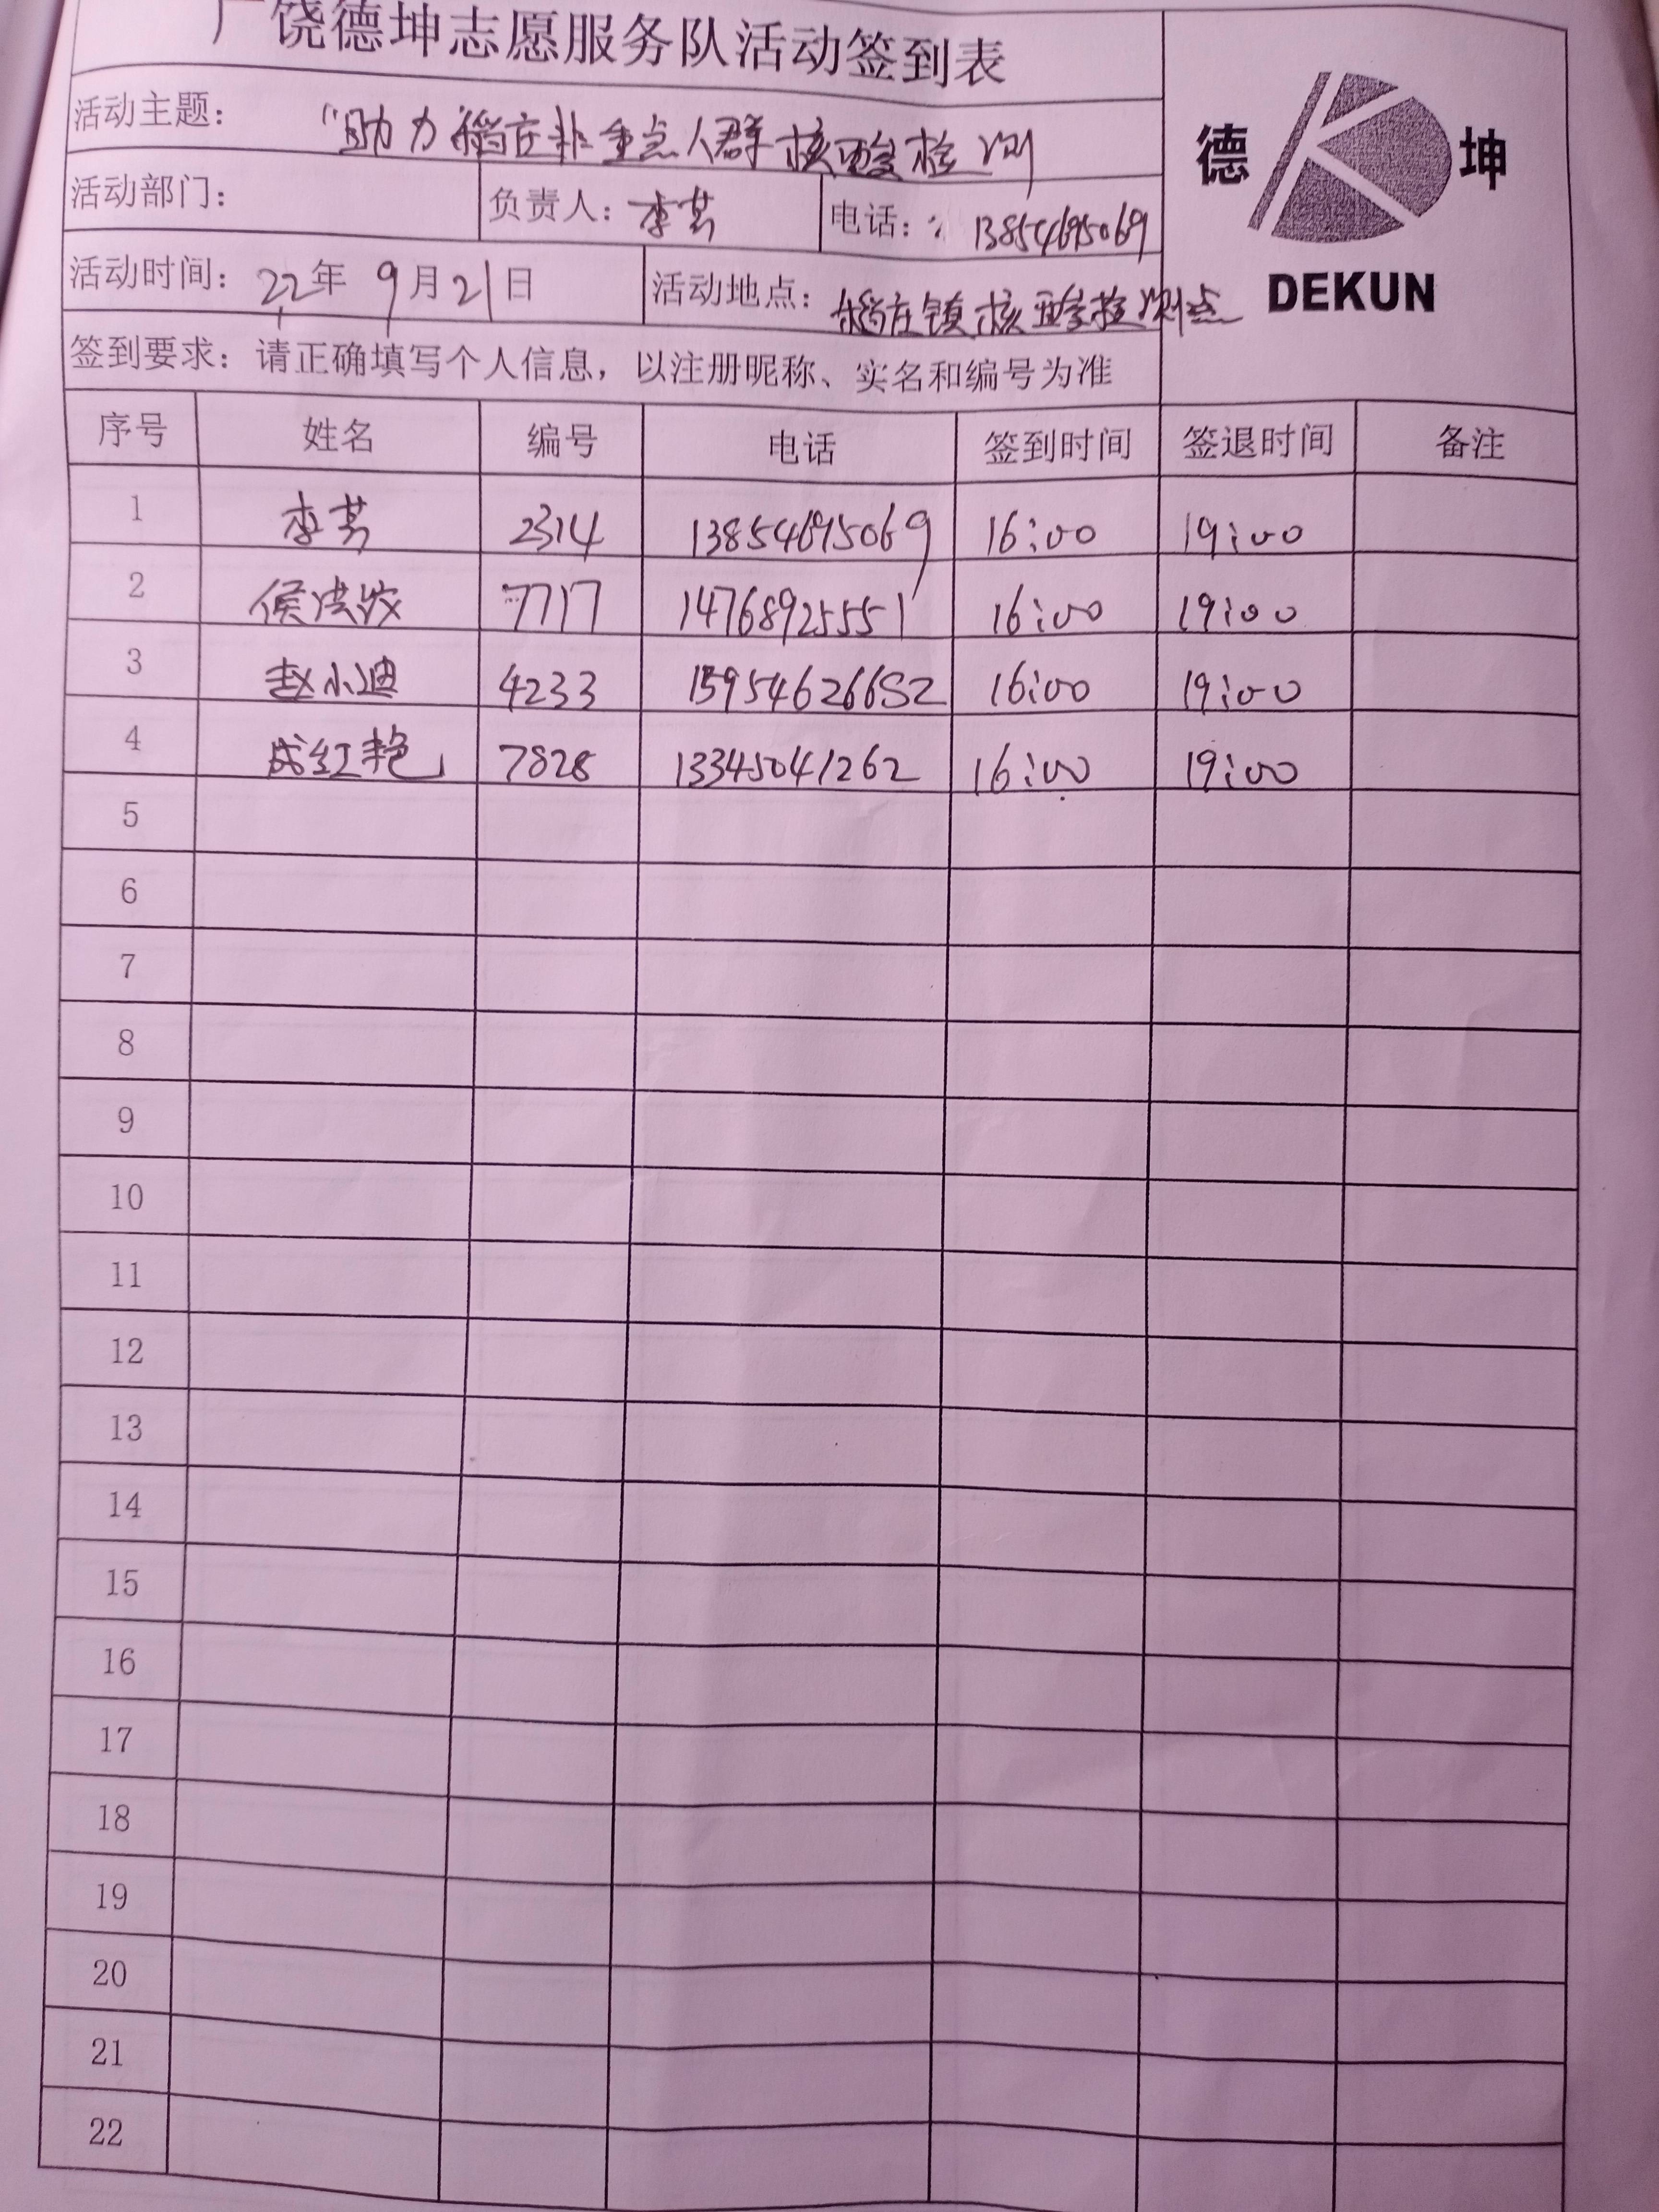 广饶德坤志愿服务队活动签到表
活动主题： "助力稻庄非重点人群核酸检测
德 坤
DEKUN
活动部门： 负责人：李芳 电话： 13854695069
活动时间：22年 9月21日 活动地点：稻庄镇核酸检测点
签到要求：请正确填写个人信息，以注册昵称、实名和编号为准
序号 姓名 编号 电话 签到时间 签退时间 备注
1 李芳 2314 13854695069 16:00 19:00
2 7717 14768925551 16:00 19:00
3 赵小迪 4233 15954626652 16:00 19:00
4 成红艳 7828 13345041262 16:00 19:00
5
6
7
8
9
10
11
12
13
14
15
16
17
18
19
20
21
22